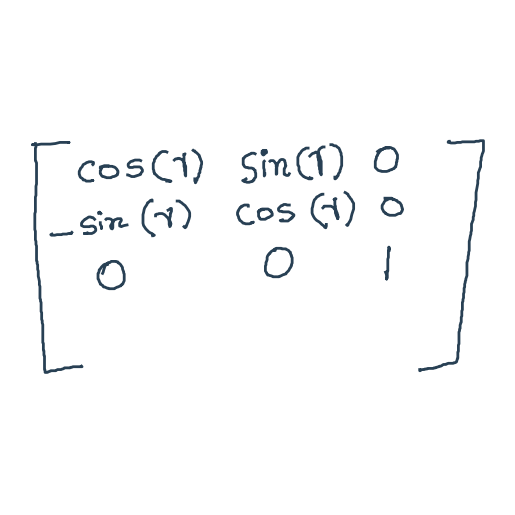 cos(γ) sin(γ) 0
-sin(γ) cos(γ) 0
0 0 1